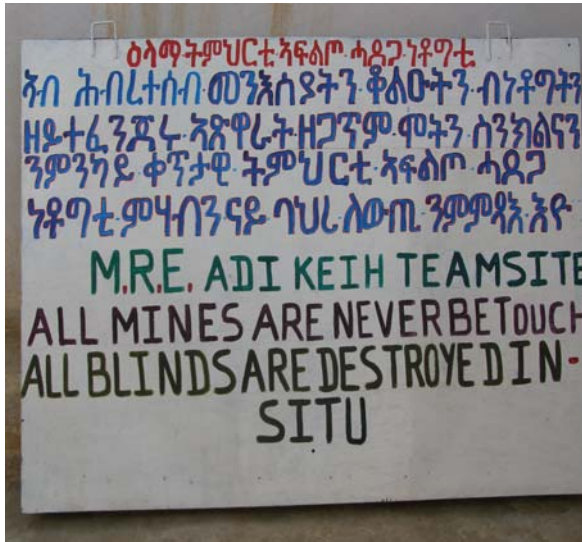 ዕላማ ትምህርቲ ኣፍልጦ ሓደጋ ነቶጕቲ
ኣብ ሕብረተሰብ መንእሰያትን ቆልዑትን ብነቶጕትን
ዘይተፈንጃሩ ኣጽዋራት ዘጋጥም ሞትን ስንክልናን
ንምንካይ ቀፃታዊ ትምህርቲ ኣፍልጦ ሓደጋ
ነቶጕቲ ምሃብን ናይ ባህሪ ለውጢ ንምምጻእ እዩ
M.R.E. ADI KEIH TEAMSITE
ALL MINES ARE NEVER BE TOUCH
ALL BLINDS ARE DESTROYED IN-
SITU